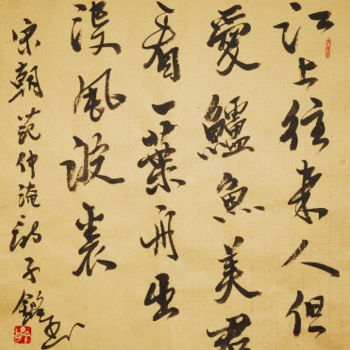 江上往来人但
愛鱸魚美君
看一葉舟出
没風波裏
宋朝范仲淹詩子銘书